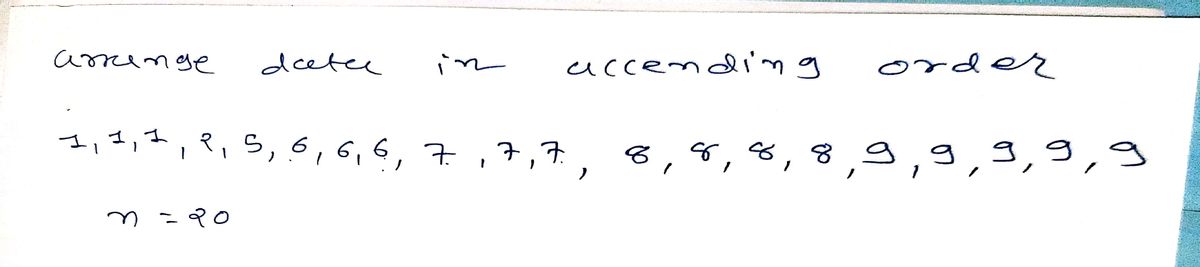 arrange data in accending order
1, 1, 1, 2, 5, 6, 6, 6, 7, 7, 7, 8, 8, 8, 8, 9, 9, 9, 9, 9
n = 20